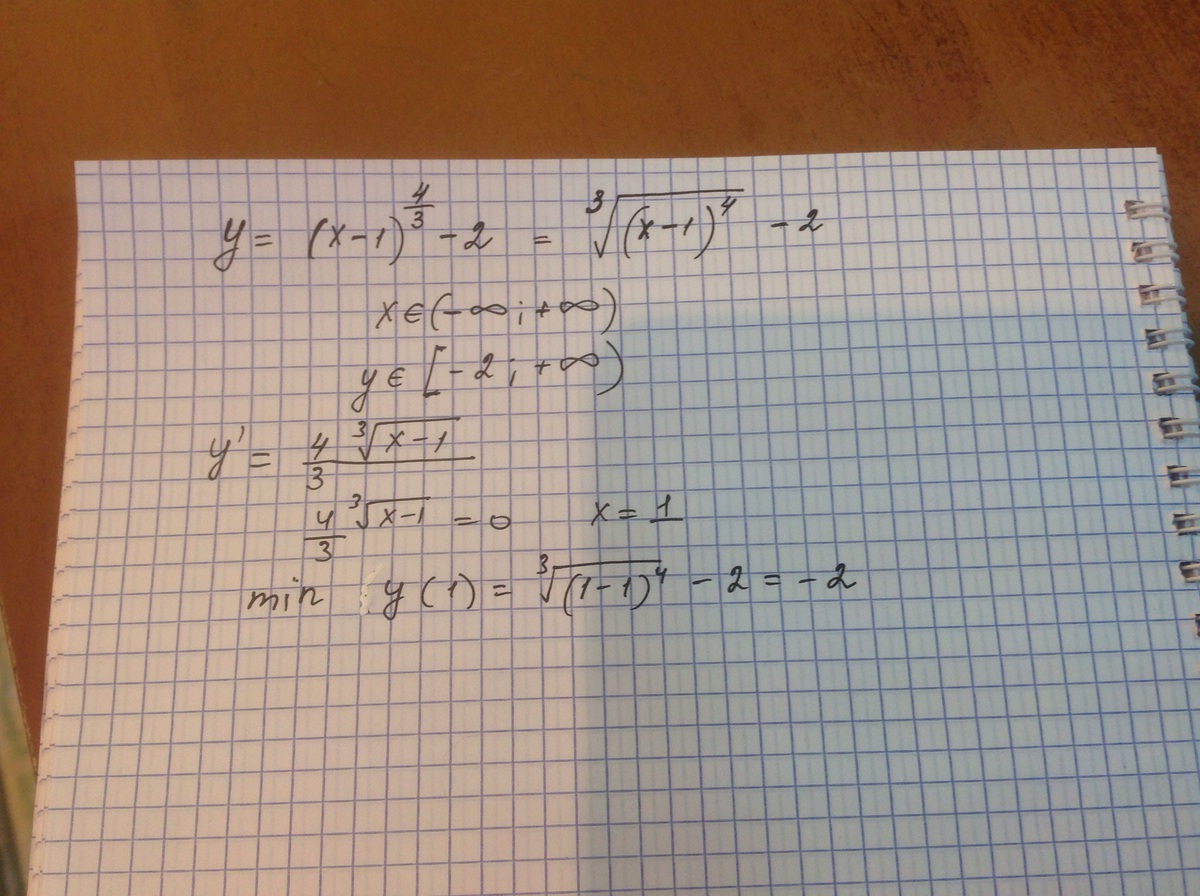 y = (x-1)^{4/3} - 2 = ∛(x-1)^4 - 2
x ∈ (-∞; +∞)
y ∈ [-2; +∞)
y' = 4 ∛x-1 / 3
4/3 ∛x-1 = 0 x = 1
min y(1) = ∛(1-1)^4 - 2 = -2